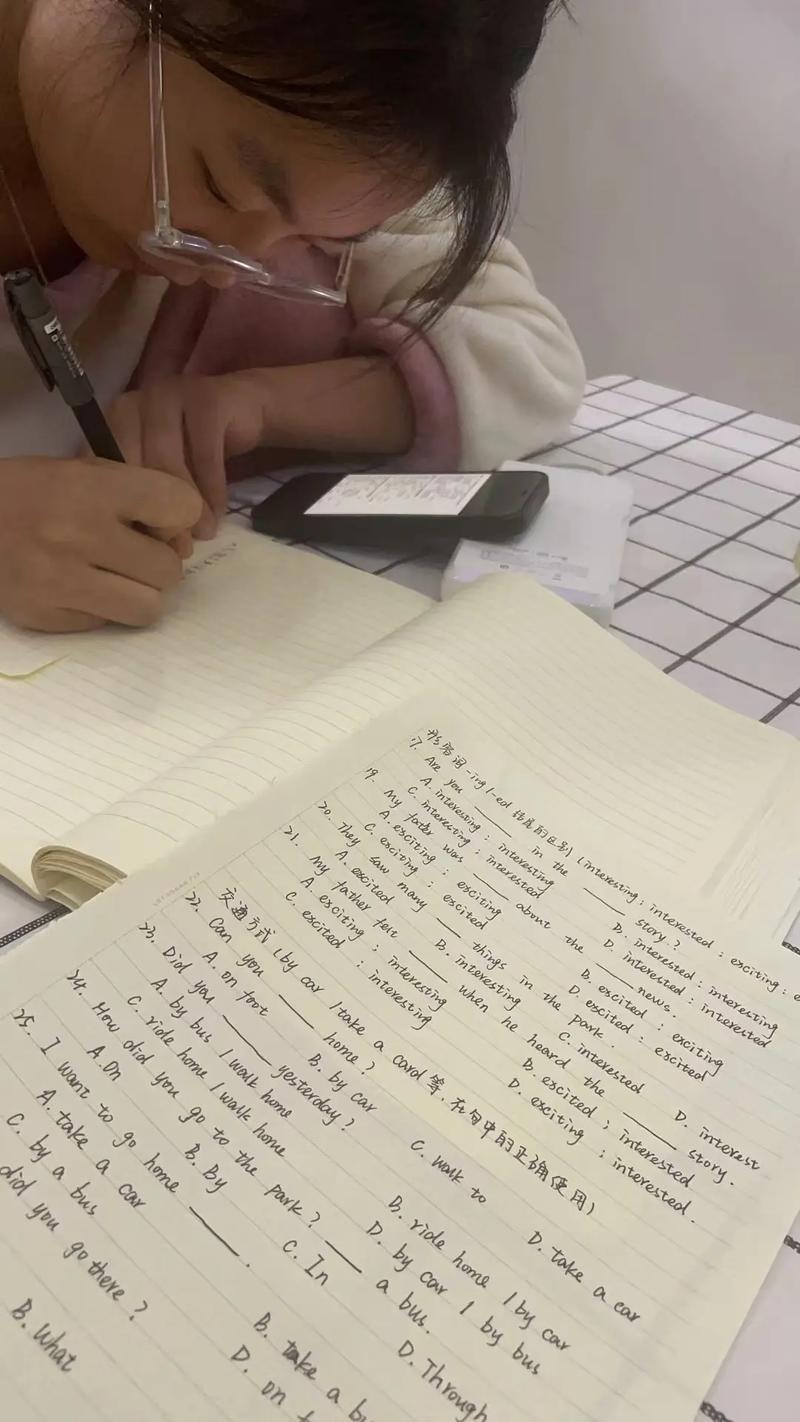 形容词 -ing/-ed 结尾的区别 (interesting; interested; exciting;
17. Are you ____ in the ____ story?
A. interesting; interesting B. interested; interesting
C. interesting; interested D. interested; interested
19. My father was ____ about the ____ news.
A. exciting; exciting B. excited; exciting
C. exciting; excited D. excited; excited
20. They saw many ____ things in the park.
A. excited B. interesting C. interested D. interest
21. My father felt ____ when he heard the ____ story.
A. exciting; interesting B. excited; interested
C. excited; interesting D. exciting; interested.
交通方式 (by car / take a card 等, 在句中的正确使用)
22. Can you ____ home?
A. on foot B. by car C. walk to D. take a car
23. Did you ____ yesterday?
A. by bus / walk home B. ride home / by car
C. ride home / walk home D. by car / by bus
24. How did you go to the park? ____ a bus.
A. On B. By C. In D. Through
25. I want to go home ____.
A. take a car B. take a
C. by a bus D. on
did you go there?
B. What